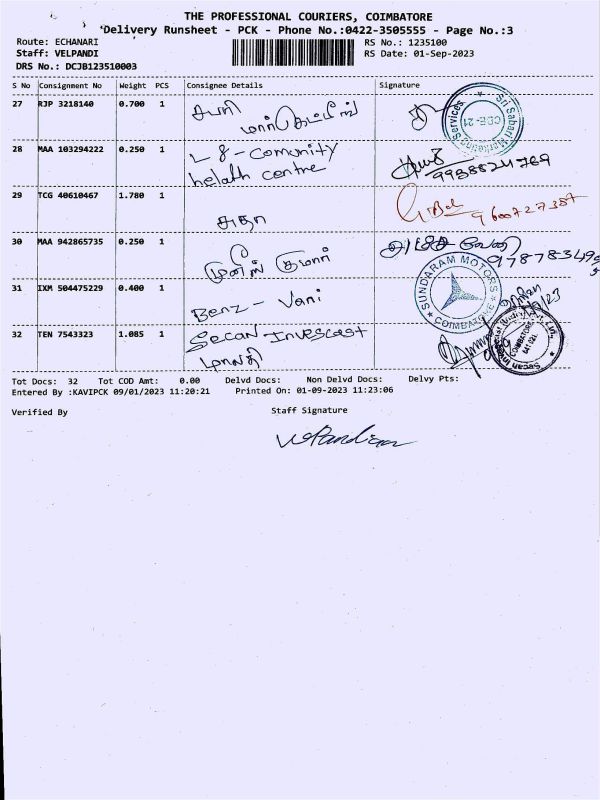 THE PROFESSIONAL COURIERS, COIMBATORE
Delivery Runsheet - PCK - Phone No.:0422-3505555 - Page No.:3
Route: ECHANARI
RS No.: 1235100
Staff: VELPANDI
RS Date: 01-Sep-2023
DRS No.: DCJB123510003
S No Consignment No Weight PCS Consignee Details Signature
27 RJP 3218140 0.700 1 சபரி
மார்கெட்டிங்
Sri Sabari Marketing Services
CBE-21
28 MAA 103294222 0.250 1 L&-Comunity
helath centre
29 TCG 40610467 1.780 1 சுதா
9600727387
30 MAA 942865735 0.250 1
முனிஸ் குமார்
SUNDARAM MOTORS
COIMBATORE
31 IXM 504475229 0.400 1 Benz - Vani
32 TEN 7543323 1.085 1 Secan-Invescast
மாலதி
Tot Docs: 32 Tot COD Amt: 0.00 Delvd Docs: Non Delvd Docs: Delvy Pts:
Entered By :KAVIPCK 09/01/2023 11:20:21 Printed On: 01-09-2023 11:23:06
Verified By Staff Signature